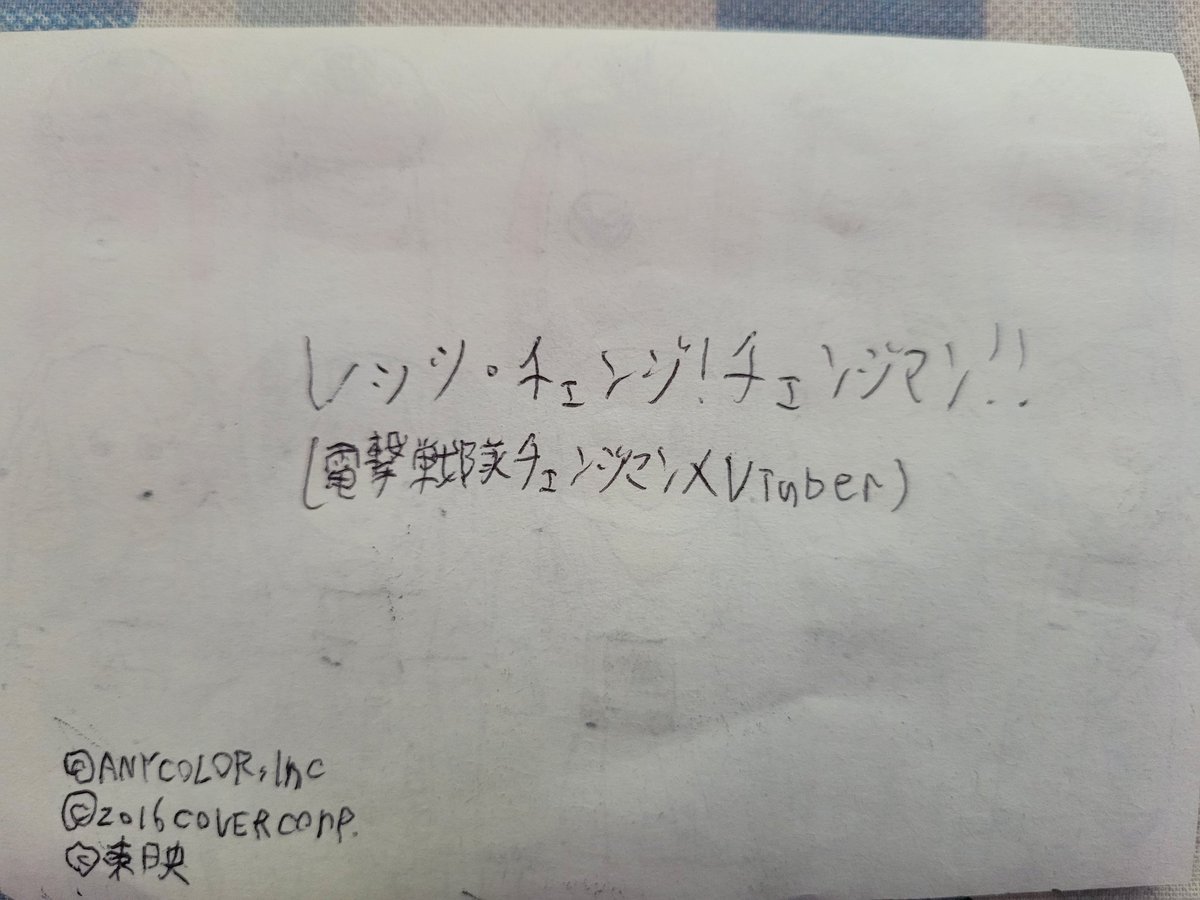 レッツ・チェンジ!チェンジマン!!
(電撃戦隊チェンジマン×VTuber)
©ANYCOLOR,Inc
©2016 COVER Corp.
©東映